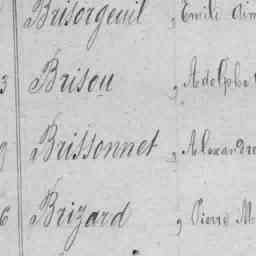 Brisorgeuil , Emile Aim
3 Brisou , Adolphe
9 Brissonnet , Alexandre
6 Brizard , Pierre M